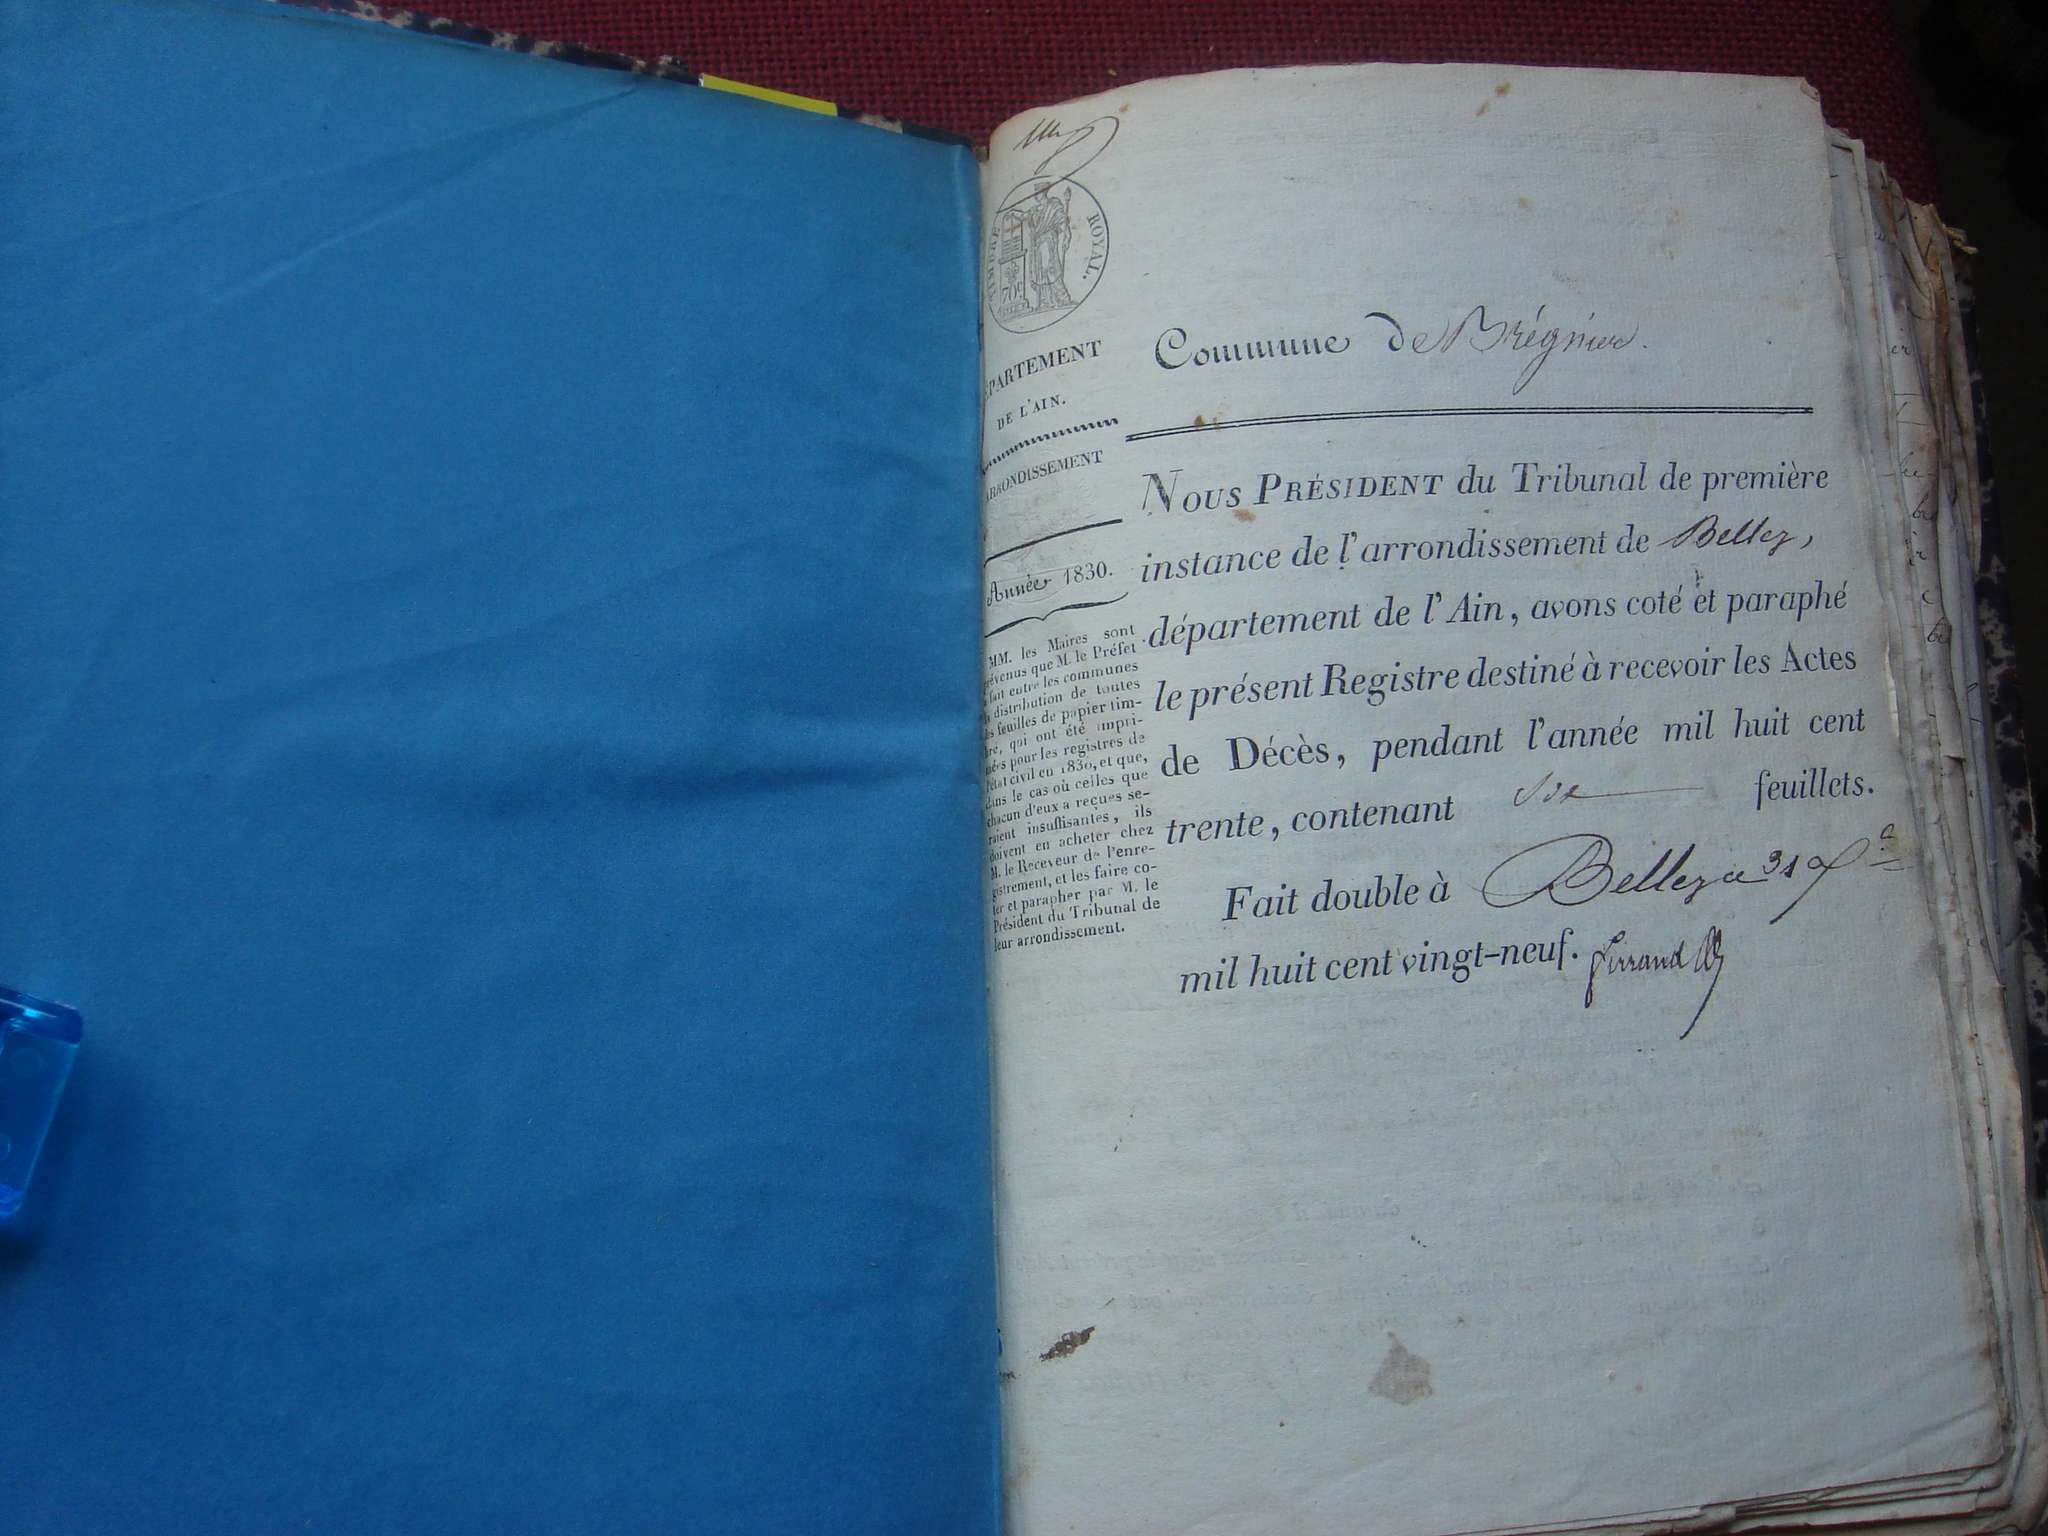 TIMBRE ROYAL.
70c
ÉPARTEMENT
DE L'AIN.
ARRONDISSEMENT
Année 1830.
MM. les Maires sont
prévenus que M. le Préfet
fait entre les communes
la distribution de toutes
les feuilles de papier tim-
bré, qui ont été impri-
mées pour les registres de
l'état civil en 1830, et que,
dans le cas où celles que
chacun d'eux a reçues se-
raient insuffisantes, ils
doivent en acheter chez
M. le Receveur de l'enre-
gistrement, et les faire co-
ter et parapher par M. le
Président du Tribunal de
leur arrondissement.
Commune de Brégnier.
NOUS PRÉSIDENT du Tribunal de première
instance de l'arrondissement de Belley,
département de l'Ain, avons coté et paraphé
le présent Registre destiné à recevoir les Actes
de Décès, pendant l'année mil huit cent
trente, contenant six feuillets.
Fait double à Belley ce 31
mil huit cent vingt-neuf.